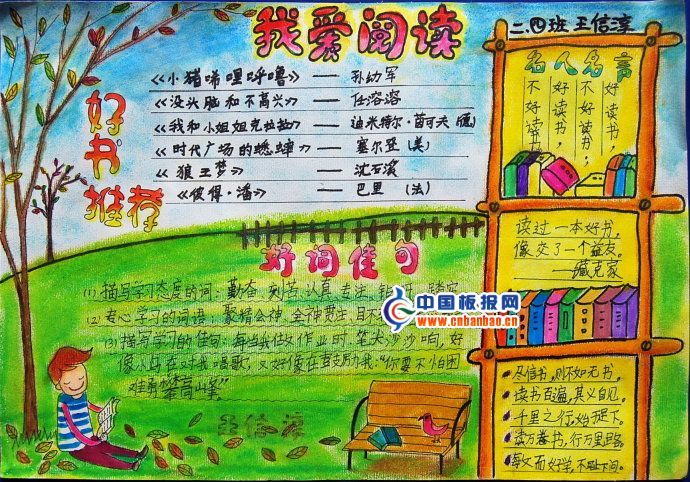 我爱阅读
二.四班 王信淳
好书推荐
《小猪唏哩呼噜》 — 孙幼军
《没头脑和不高兴》 — 任溶溶
《我和小姐姐克拉拉》 — 迪米特尔·茵可夫(德)
《时代广场的蟋蟀》 — 塞尔登(美)
《狼王梦》 — 沈石溪
《彼得·潘》 — 巴里 (法)
名人名言
好读书,
不好读书;
好读书,
不好读书。
读过一本好书,
像交了一个益友。
——臧克家
尽信书,则不如无书。
读书百遍,其义自见。
千里之行,始于足下。
读万卷书,行万里路
敏而好学,不耻下问。
好词佳句
(1) 描写学习态度的词:勤奋 刻苦 认真 专注
(2) 专心学习的词语:聚精会神 全神贯注 目不
(3) 描写学习的佳句:每当我在作业时,笔尖沙沙响,好
像小鸟在对我唱歌,又好像在鼓励我:“你要不怕困
难勇攀高山峰”
王信淳
中国板报网
www.cnbanbao.cn